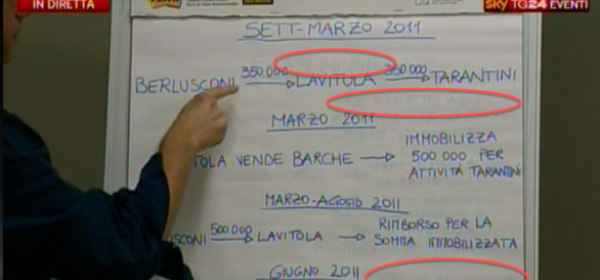 IN DIRETTA
sky TG24 EVENTI
SETT-MARZO 2011
BERLUSCONI 350.000 LAVITOLA 350000 TARANTINI
MARZO 2011
TOLA VENDE BARCHE
IMMOBILIZZA
500 000 PER
ATTIVITÀ TARANTINI
MARZO-AGOSTO 2011
USCONI 500000 LAVITOLA
RIMBORSO PER LA
SOMMA IMMOBILIZZATA
GIUGNO 2011